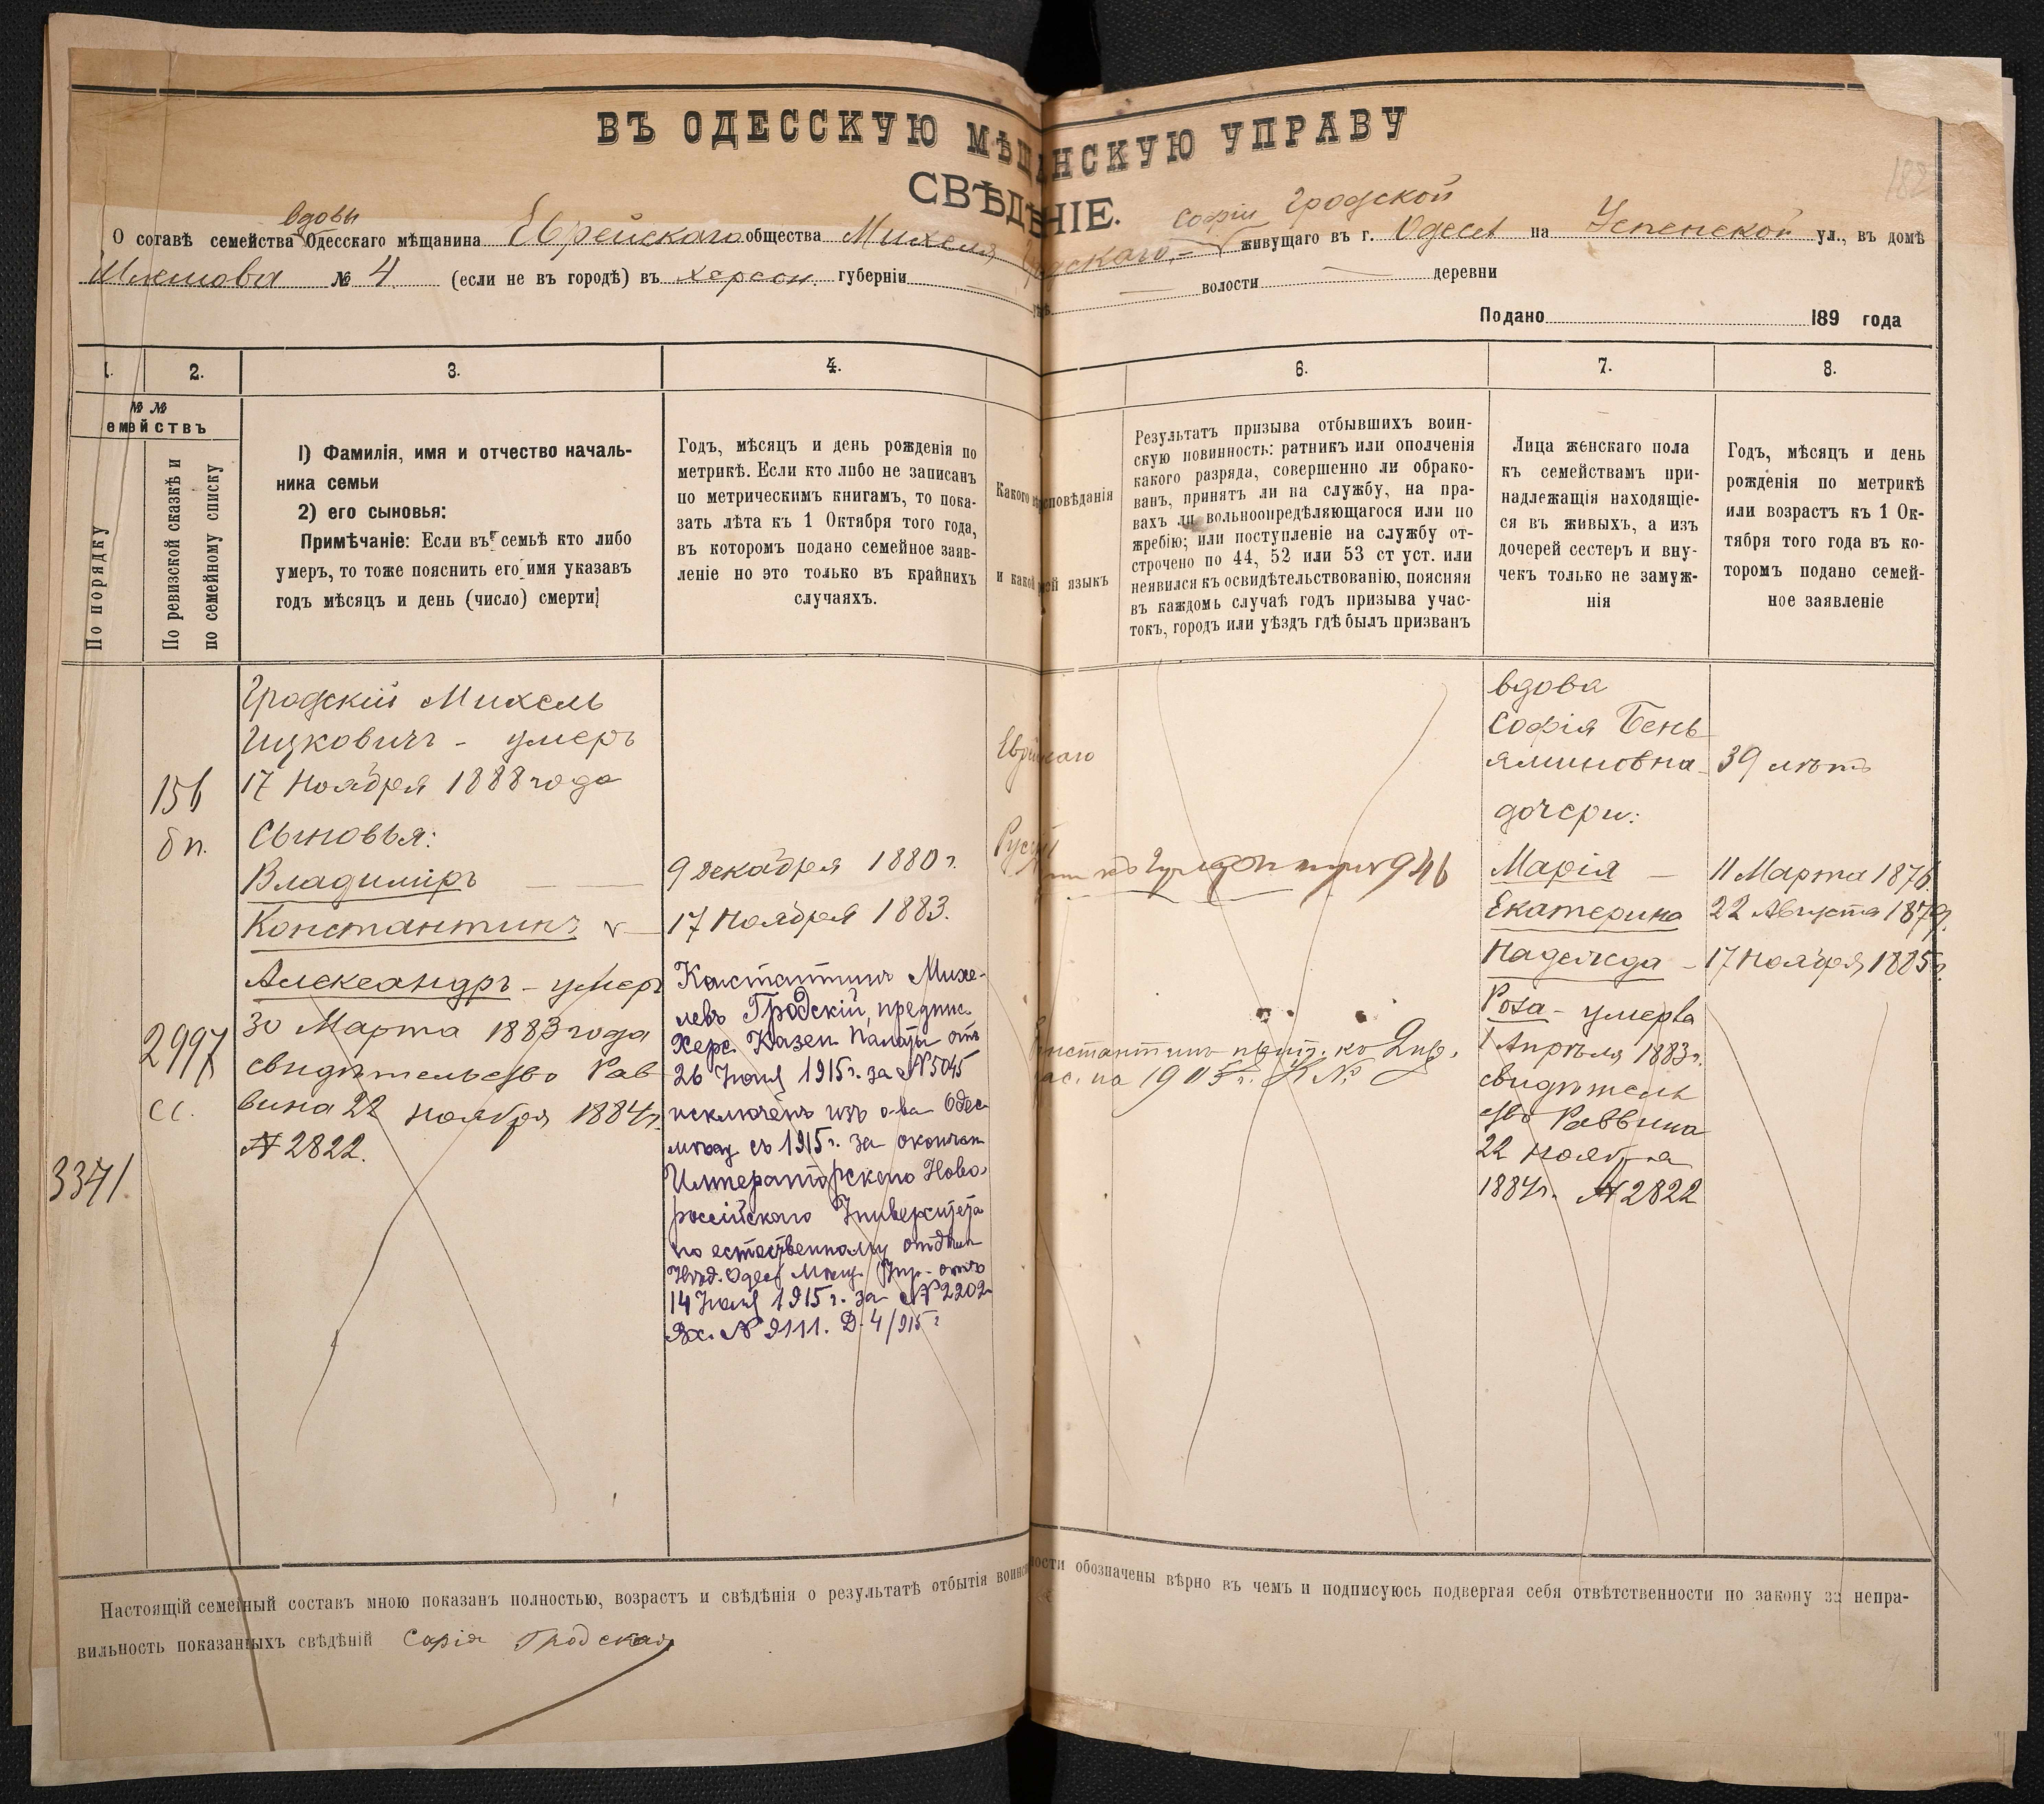 ВЪ ОДЕССКУЮ МѢЩАНСКУЮ УПРАВУ
СВѢДѢНІЕ.
182
вдовы
Софіи Гродской
О соtавѣ семейства Одесскаго мѣщанина Еврейскаго общества Михеля Гродскаго,- живущаго въ г. Одессѣ на Успенской ул., въ домѣ
№ 4. (если не въ городѣ) въ Херсон. губерніи волости деревни
Подано 189 года
1.
2.
3.
4.
6.
7.
8.
№ №
емействъ
По порядку
По ревизской сказкѣ и
по семейному списку
1) Фамилія, имя и отчество началь-
ника семьи
2) его сыновья:
Примѣчаніе: Если въ семьѣ кто либо
умеръ, то тоже пояснить его имя указавъ
годъ мѣсяцъ и день (число) смерти
Годъ, мѣсяцъ и день рожденія по
метрикѣ. Если кто либо не записанъ
по метрическимъ книгамъ, то пока-
зать лѣта къ 1 Октября того года,
въ которомъ подано семейное заяв-
леніе но это только въ крайнихъ
случаяхъ.
Какого исповѣданія
и какой языкъ
Результатъ призыва отбывшихъ воин-
скую повинность: ратникъ или ополченія
какого разряда, совершенно ли обрако-
ванъ, принятъ ли на службу, на пра-
вахъ ли вольноопредѣляющагося или по
жребію; или поступленіе на службу от-
строчено по 44, 52 или 53 ст уст. или
неявился къ освидѣтельствованію, поясняя
въ каждомь случаѣ годъ призыва учас-
токъ, городъ или уѣздъ гдѣ былъ призванъ
Лица женскаго пола
къ семействамъ при-
надлежащія находящіе-
ся въ живыхъ, а изъ
дочерей сестеръ и вну-
чекъ только не замуж-
нія
Годъ, мѣсяцъ и день
рожденія по метрикѣ
или возрастъ къ 1 Ок-
тября того года въ ко-
торомъ подано семей-
ное заявленіе
156
бп.
2997
сс.
3371
Гродскій Михель
Ицковичъ - умеръ
17 Ноября 1888 года
Сыновья:
Владиміръ
Константинъ
Александръ - умеръ
30 Марта 1883 года
свидѣтельство Рав
вина 22 Ноября 1884г.
№ 2822.
9 декабря 1880 г.
17 Ноября 1883.
Константинъ Михе-
левъ Гродскій, предпис.
Херс. Казен. Палаты отъ
26 Іюня 1915 г. за № 5045
исключенъ изъ о-ва Одес
мѣщ съ 1915 г. за окончан
Императорскаго Ново-
россійскаго Университета
по естественному отдѣлен
Одес Мѣщ. Упр. отъ
14 Іюля 1915 г. за № 2202
Вх. № 9111. Д. 4/915 г
Еврейскаго
Русскій
946
Константинъ къ
на 1905 г. №
вдова
Софія Бень
яминовна
дочери:
Марія
Екатерина
Надежда
Роза - умерла
1 Апрѣля 1883 г.
свидѣтель
ство Раввина
22 Ноября
1884г. № 2822
39 лѣтъ
11 Марта 1876.
22 Августа 1879.
17 Ноября 1885г.
Настоящій семейный составъ мною показанъ полностью, возрастъ и свѣдѣнія о результатѣ отбытія воинской повинности обозначены вѣрно въ чемъ и подписуюсь подвергая себя отвѣтственности по закону за непра-
вильность показанныхъ свѣдѣній Софія Гродская